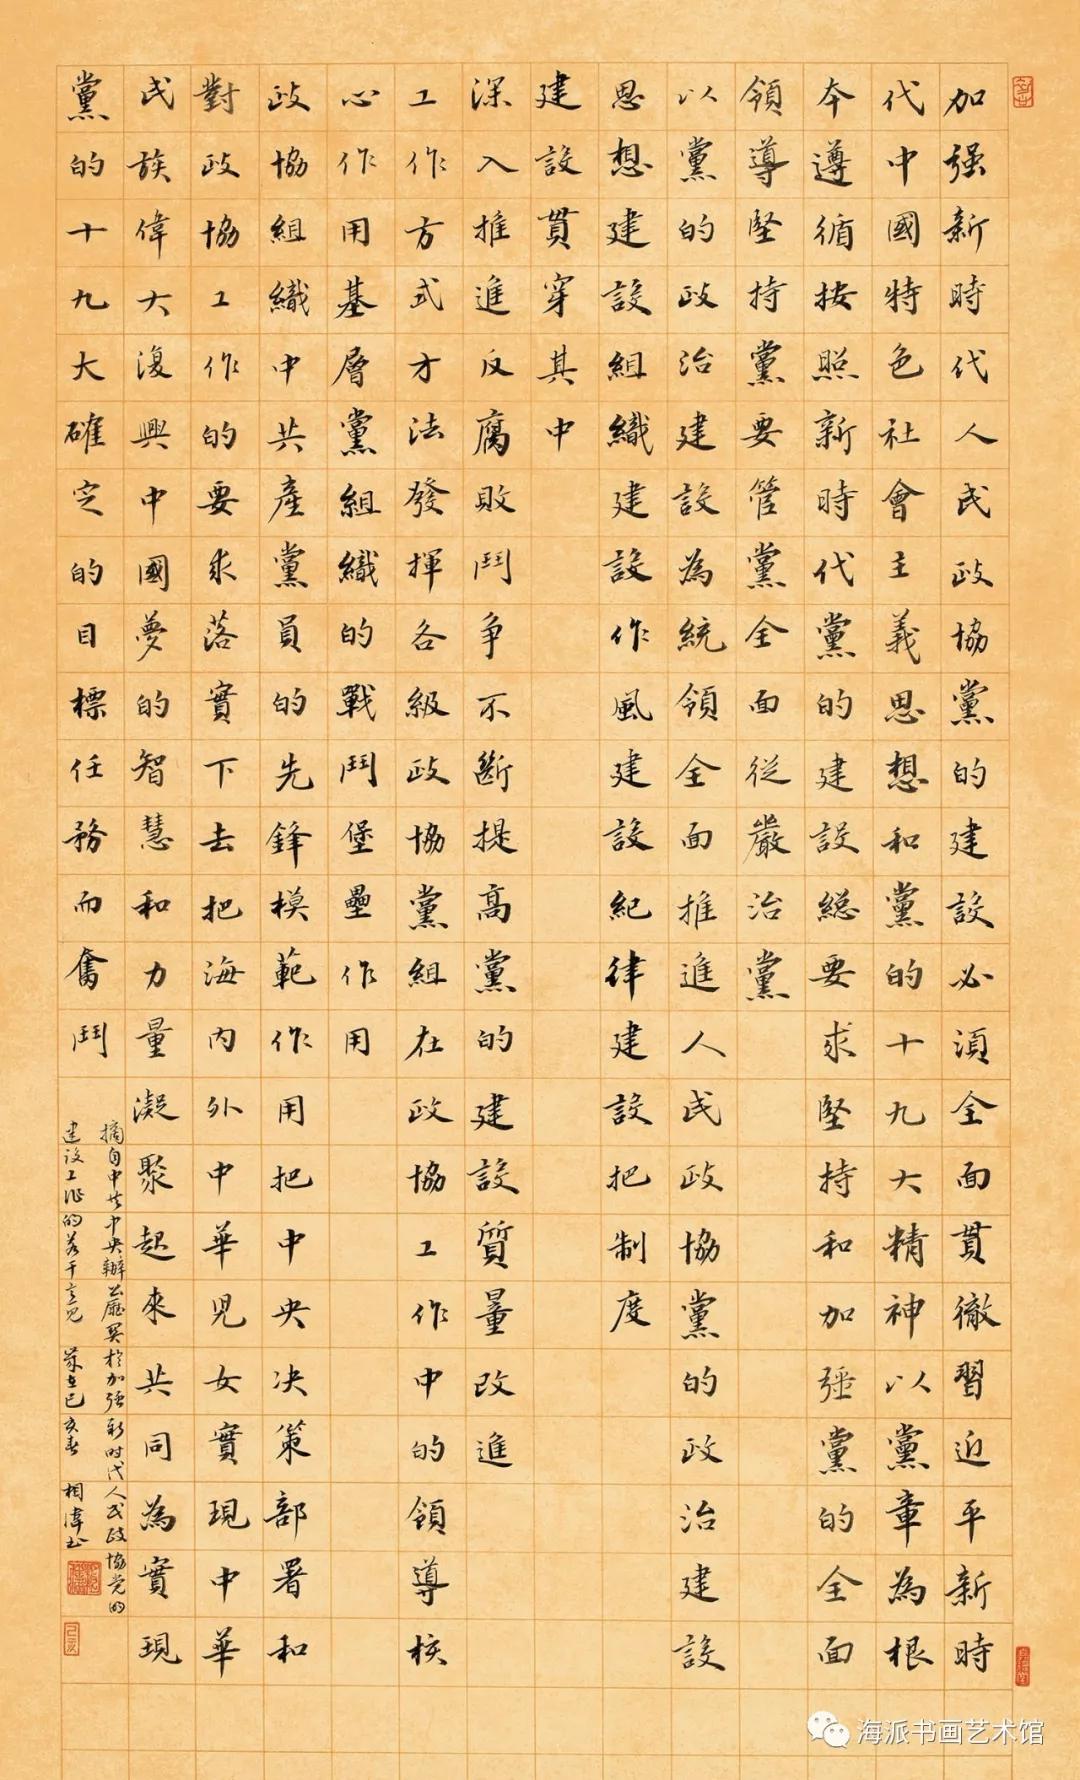 加强新時代人民政協黨的建設必須全面貫徹習近平新時
代中國特色社會主義思想和黨的十九大精神以黨章為根
本遵循按照新時代黨的建設總要求堅持和加强黨的全面
領導堅持黨要管黨全面從嚴治黨
以黨的政治建設為統領全面推進人民政協黨的政治建設
思想建設組織建設作風建設紀律建設把制度
建設貫穿其中
深入推進反腐敗鬥争不斷提高黨的建設質量改進
工作方式才法發揮各級政協黨組在政協工作中的領導核
心作用基層黨組織的戰鬥堡壘作用
政協組織中共產黨員的先鋒模範作用把中央决策部署和
對政協工作的要求落實下去把海内外中華兒女實現中華
民族偉大復興中國夢的智慧和力量凝聚起來共同為實現
黨的十九大確定的目標任務而奮鬥
摘自中共中央辦公廳関於加强新时代人民政协党的
建设工作的若干意见 岁在己亥春 相偉书
海派书画艺术馆